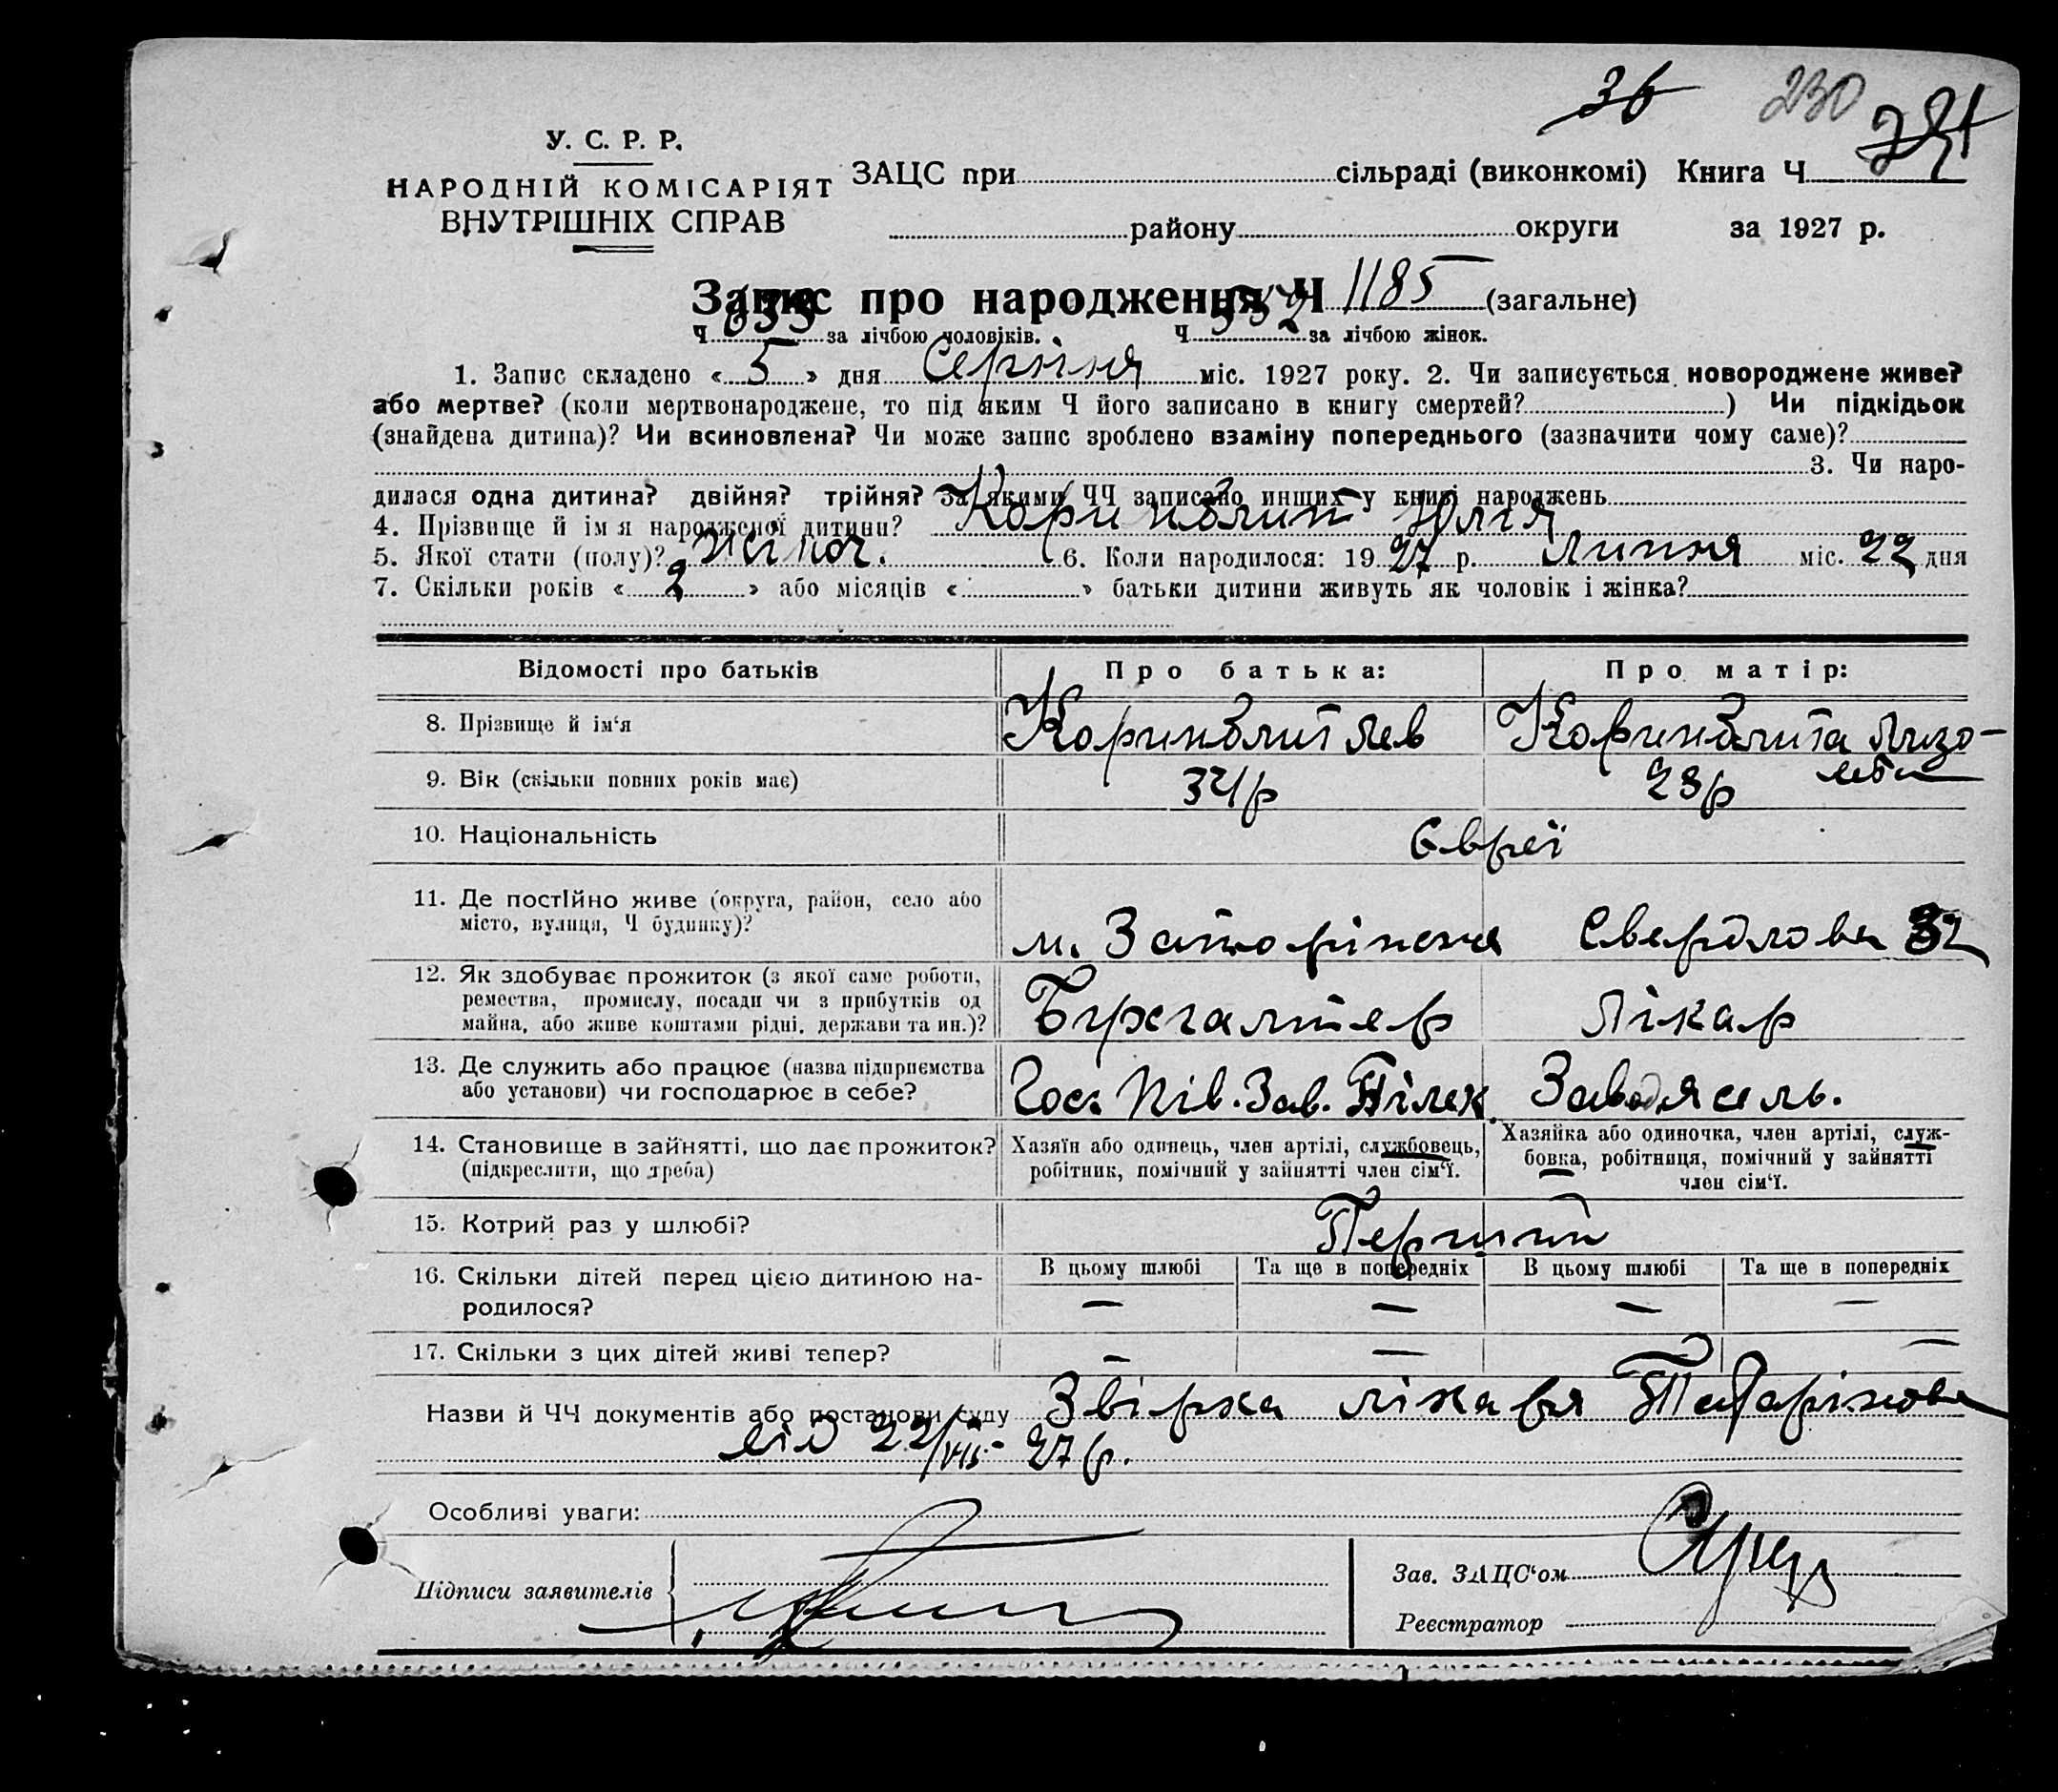 36 230 291
У. С. Р. Р.
НАРОДНІЙ КОМІСАРІЯТ
ВНУТРІШНІХ СПРАВ
ЗАЦС при сільраді (виконкомі) Книга Ч
району округи за 1927 р.
Запис про народження Ч 1185 (загальне)
Ч 633 за лічбою чоловіків. Ч 552 за лічбою жінок.
1. Запис складено « 5 » дня Серпня міс. 1927 року. 2. Чи записується новороджене живе?
або мертве? (коли мертвонароджене, то під яким Ч його записано в книгу смертей? ) Чи підкідьок
(знайдена дитина)? Чи всиновлена? Чи може запис зроблено взаміну попереднього (зазначити чому саме)?
3. Чи наро-
дилася одна дитина? двійня? трійня? За якими ЧЧ записано инших у книзі народжень
4. Прізвище й ім я народженої дитини? Коринблит Юлія
5. Якої стати (полу)? жіноч. 6. Коли народилося: 19 27 р. Липня міс. 22 дня
7. Скільки років « 2 » або місяців « » батьки дитини живуть як чоловік і жінка?
Відомості про батьків Про батька: Про матір:
8. Прізвище й ім‘я Коринблит Лев Коринблита Лизо-
вета
9. Вік (скільки повних років має) 34 р 23 р
10. Національність Євреї
11. Де постійно живе (округа, район, село або
місто, вулиця, Ч будинку)? м. Запоріжжя Свердлова 32
12. Як здобуває прожиток (з якої саме роботи,
ремества, промислу, посади чи з прибутків од
майна, або живе коштами рідні, держави та ин.)? Бухгалтер Лікар
13. Де служить або працює (назва підприємства
або установи) чи господарює в себе? Гос. Пів. Зав. Заводясель.
14. Становище в зайнятті, що дає прожиток?
(підкреслити, що треба)
Хазяїн або одинець, член артілі, службовець,
робітник, помічний у зайнятті член сім‘ї.
Хазяйка або одиночка, член артілі, служ-
бовка, робітниця, помічний у зайнятті
член сім‘ї.
15. Котрий раз у шлюбі? Перший
16. Скільки дітей перед цією дитиною на-
родилося?
В цьому шлюбі Та ще в попередніх В цьому шлюбі Та ще в попередніх
— — — —
17. Скільки з цих дітей живі тепер? — — — —
Назви й ЧЧ документів або постанови суду Звірка лікаря
від 22/VII- 27 р.
Особливі уваги:
Підписи заявителів
Зав. ЗАЦС‘ом
Реєстратор